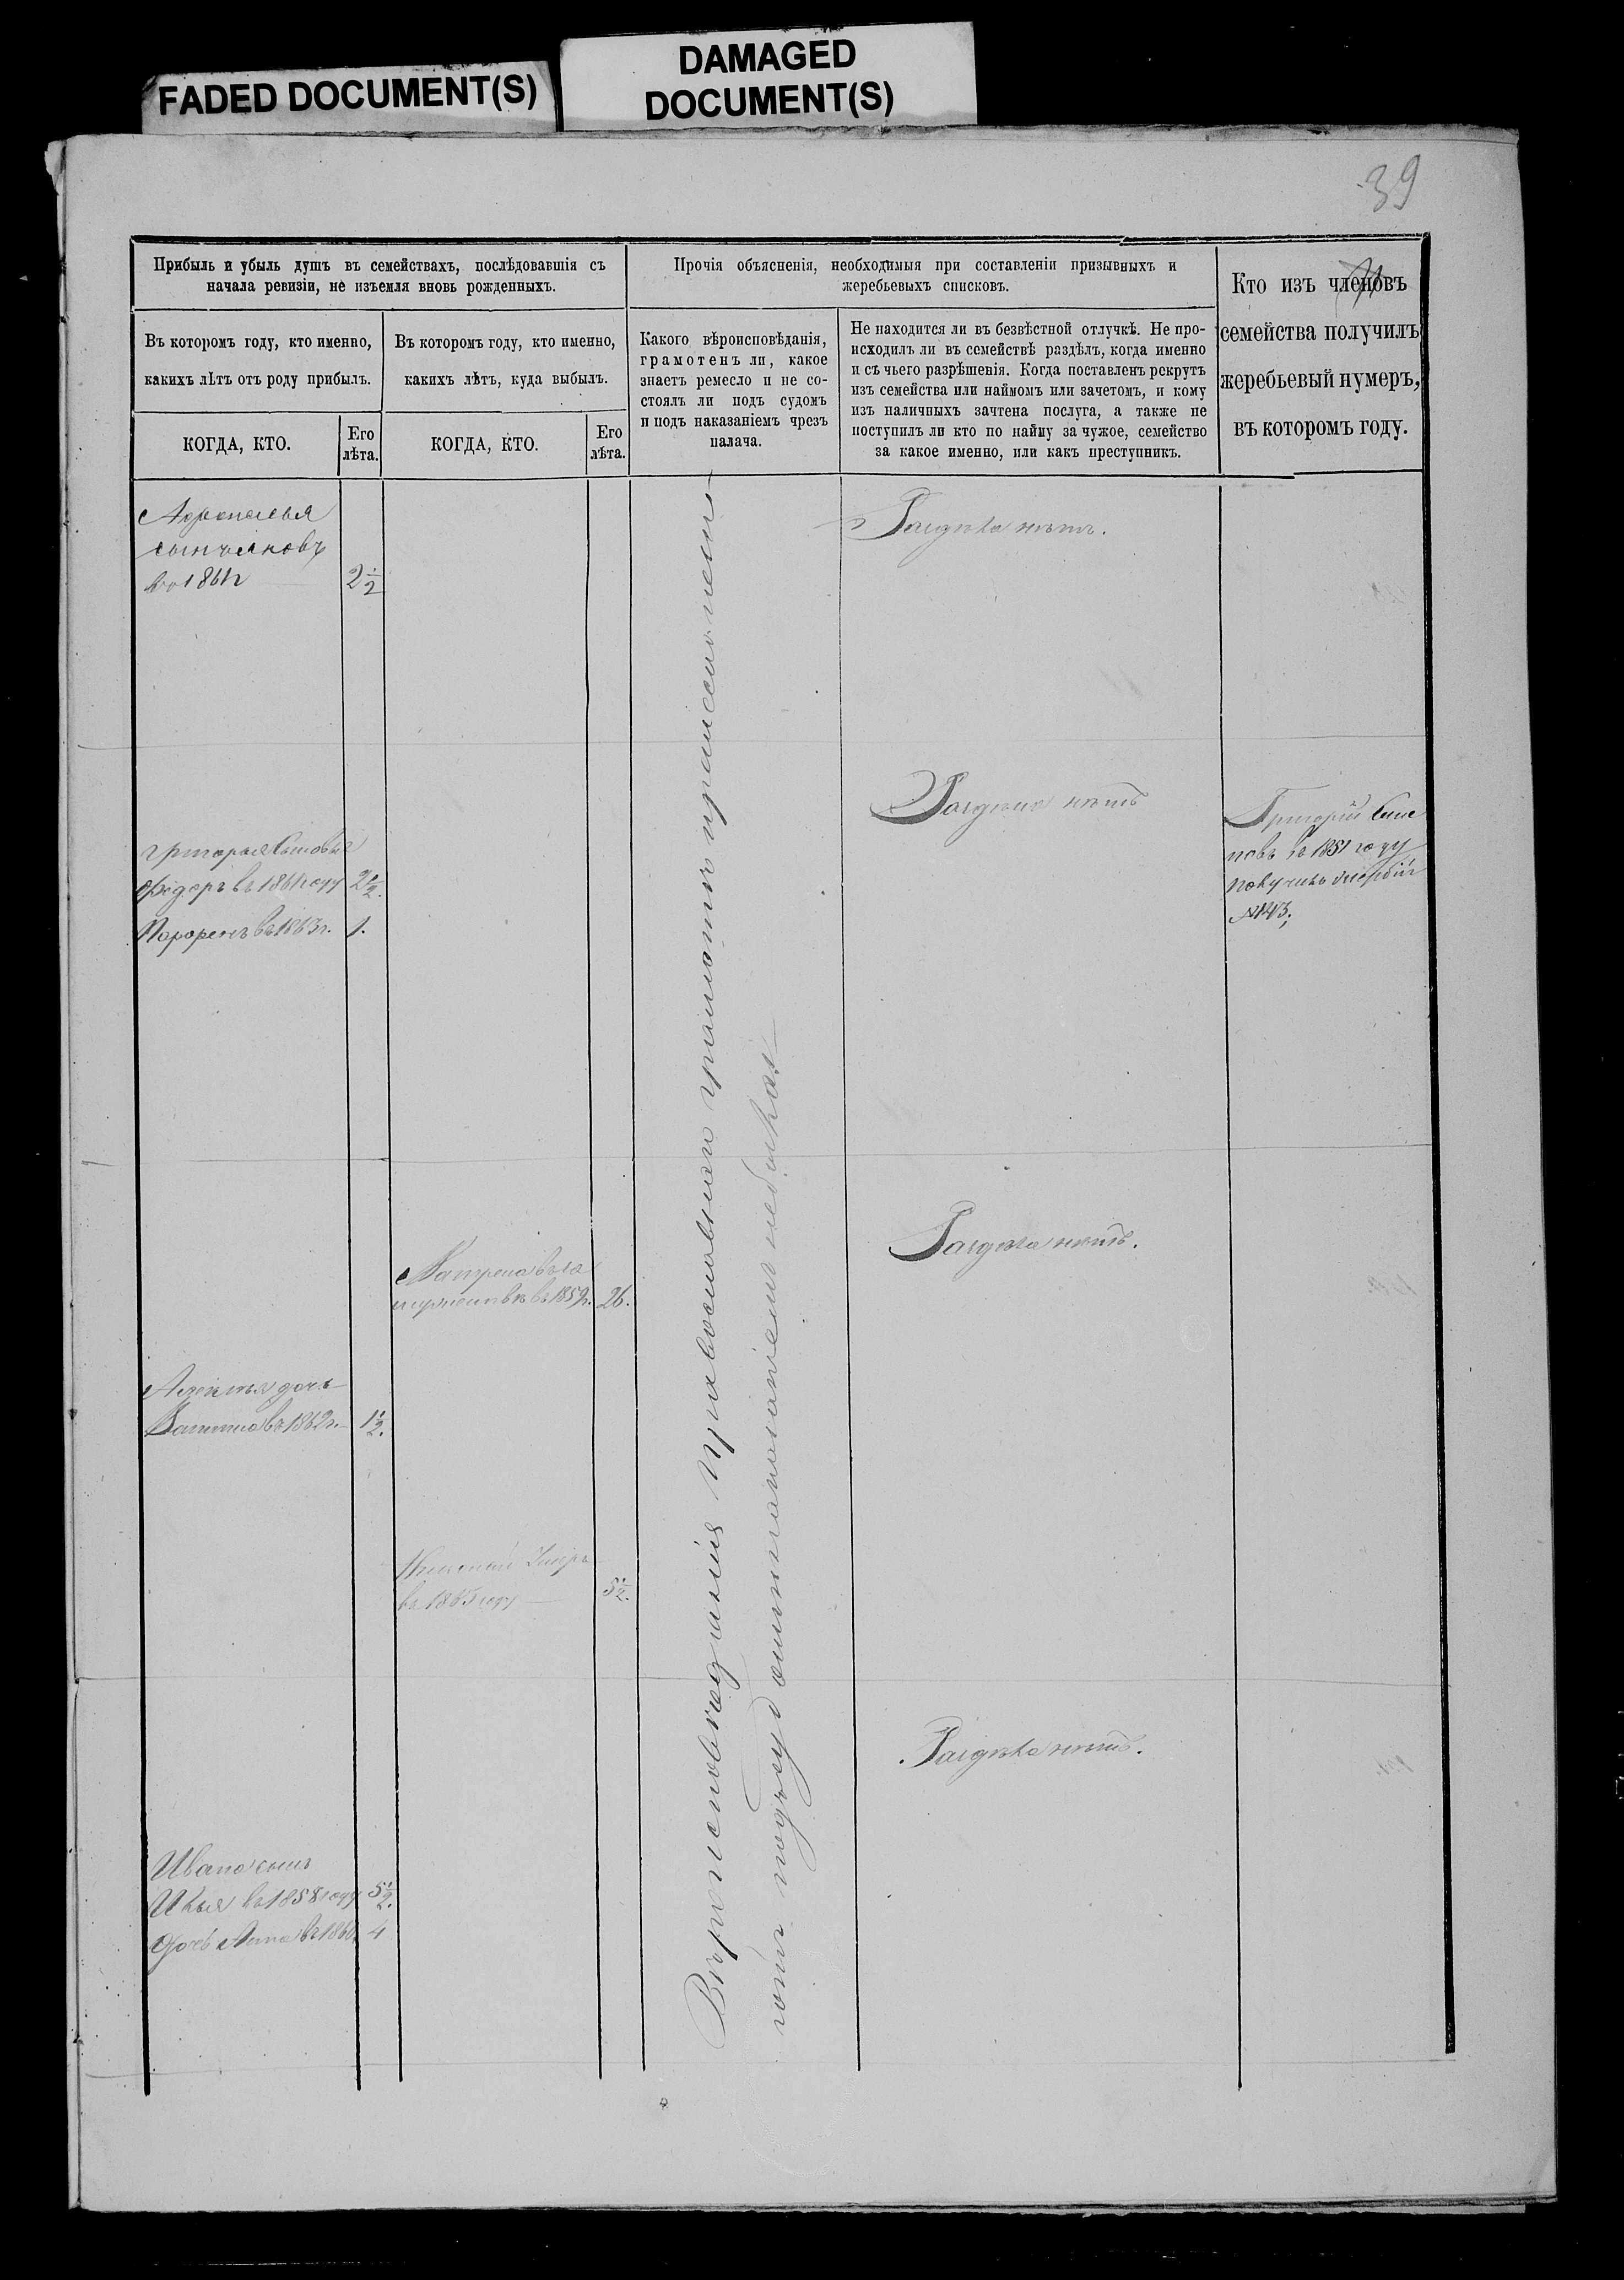 FADED DOCUMENT(S)
DAMAGED
DOCUMENT(S)
39
Прибыль и убыль душъ въ семействахъ, послѣдовавшія съ
начала ревизіи, не изъемля вновь рожденныхъ.
Въ которомъ году, кто именно,
какихъ лѣтъ отъ роду прибылъ.
КОГДА, КТО.
Его
лѣта.
Въ которомъ году, кто именно,
какихъ лѣтъ, куда выбылъ.
КОГДА, КТО.
Его
лѣта.
Прочія объясненія, необходимыя при составленіи призывныхъ и
жеребьевыхъ списковъ.
Какого вѣроисповѣданія,
грамотенъ ли, какое
знаетъ ремесло и не со-
стоялъ ли подъ судомъ
и подъ наказаніемъ чрезъ
палача.
Не находится ли въ безвѣстной отлучкѣ. Не про-
исходилъ ли въ семействѣ раздѣлъ, когда именно
и съ чьего разрѣшенія. Когда поставленъ рекрутъ
изъ семейства или наймомъ или зачетомъ, и кому
изъ наличныхъ зачтена послуга, а также не
поступилъ ли кто по найму за чужое, семейство
за какое именно, или какъ преступникъ.
Кто изъ членовъ
семейства получилъ
жеребьевый нумеръ,
въ которомъ году.
2 1/2
Раздѣла нѣтъ.
Раздѣла нѣтъ
Григорій
новъ въ 1851 году
получилъ жербій
№143;
Григорья сыновья
Фёдоръ въ 1861 году 2 1/2.
Парфенъ въ 1863 г. 1.
Раздѣла нѣтъ.
въ 1859 г. 26.
дочь
въ 1862 г. 1 1/2.
Николай Умеръ
въ 1863 году 5 1/2.
Раздѣла нѣтъ.
Ивана сынъ
Илья въ 1858 году 5 1/2.
дочь Анна въ 1860 4
Вѣроисповѣданія Православнаго грамотѣ
подъ судомъ и наказаніемъ не былъ